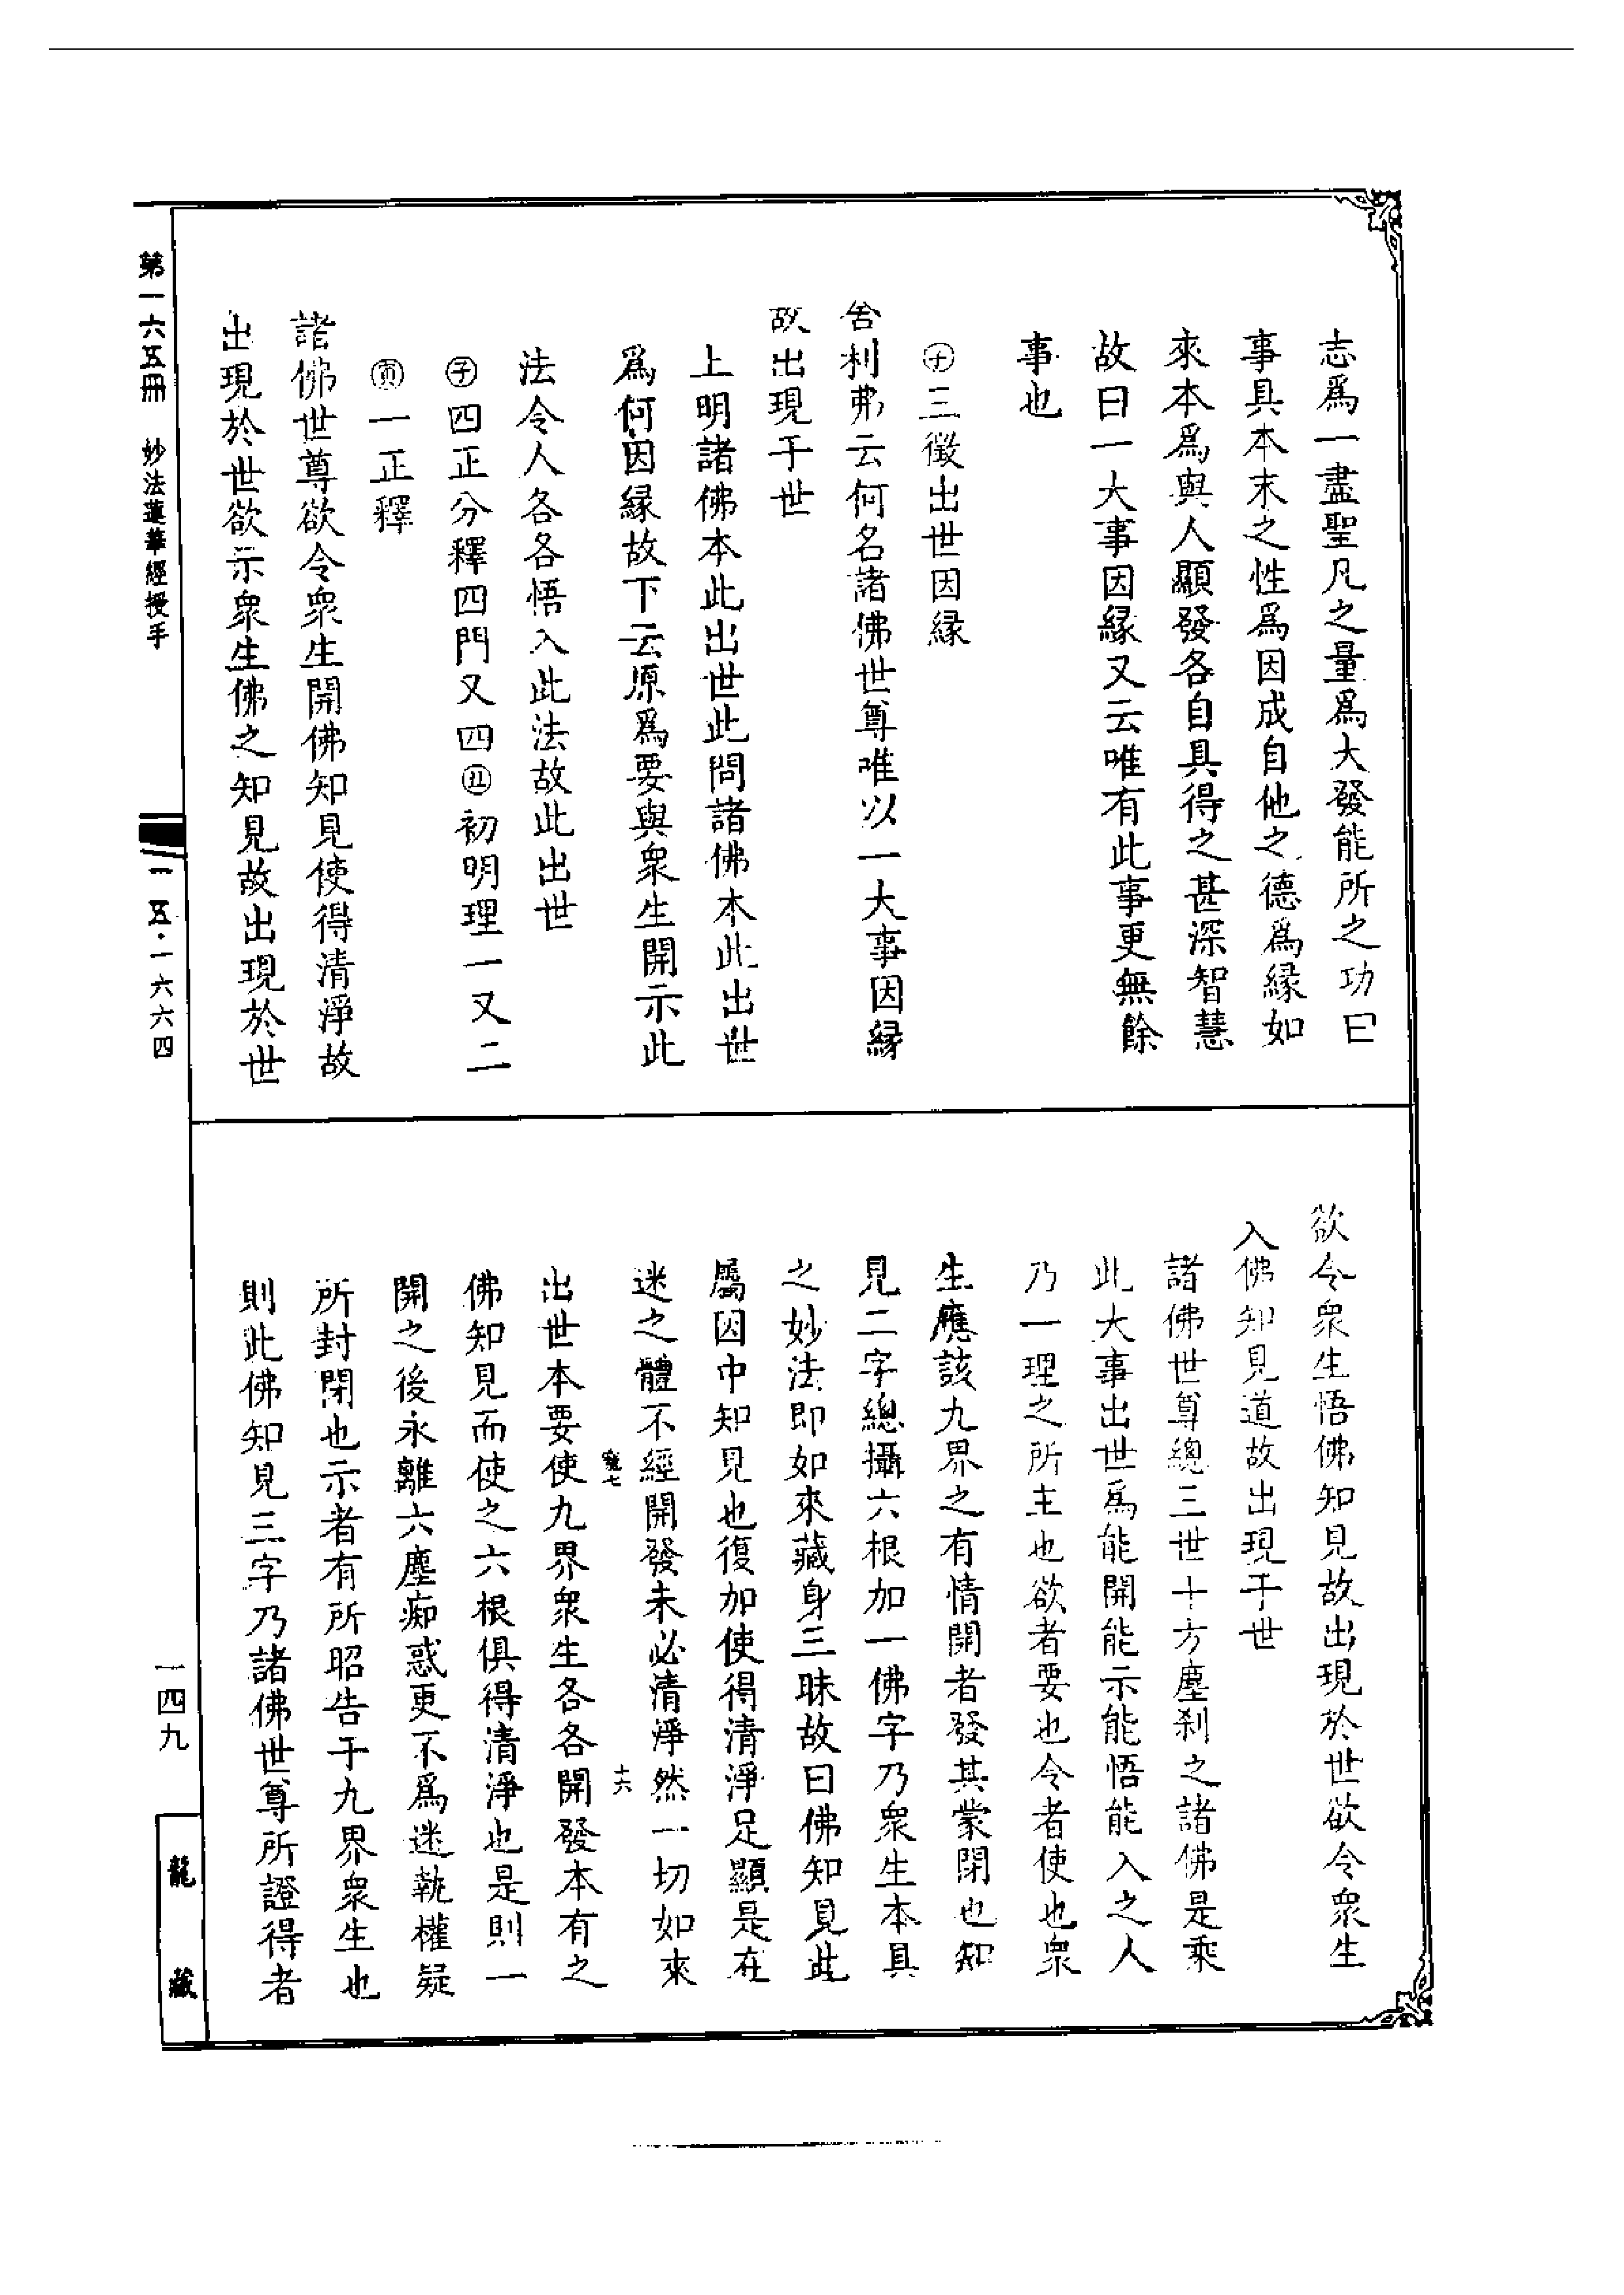 志爲一盡聖凡之量爲大發能所之功曰
事具本末之性爲因成自他之德爲緣如
來本爲與人顯發各自具得之甚深智慧
故曰一大事因緣又云唯有此事更無餘
事也
㊉三徵出世因緣
舍利弗云何名諸佛世尊唯以一大事因緣
故出現于世
上明諸佛本此出世此問諸佛本此出世
爲何因緣故下云原爲要與衆生開示此
法令人各各悟入此法故此出世
㊉四正分釋四門又四㊉初明理一又二
㊉一正釋
諸佛世尊欲令衆生開佛知見使得清淨故
出現於世欲示衆生佛之知見故出現於世
欲令衆生悟佛知見故出現於世欲令衆生
入佛知見道故出現于世
諸佛世尊總三世十方塵刹之諸佛是乘
此大事出世爲能開能示能悟能入之人
乃一理之所主也欲者要也令者使也衆
生應該九界之有情開者發其蒙閉也知
見二字總攝六根加一佛字乃衆生本具
之妙法即如來藏身三昧故曰佛知見此
屬因中知見也復加使得清淨足顯是在
迷之體不經開發未必清淨然一切如來
出世本要使九界衆生各各開發本有之
佛知見而使之六根俱得清淨也是則一
開之後永離六塵痴惑更不爲迷執權疑
所封閉也示者有所昭告于九界衆生也
則此佛知見三字乃諸佛世尊所證得者
七
十六
第一六五冊　妙法蓮華經授手
一五·一六六四
一四九
龍藏